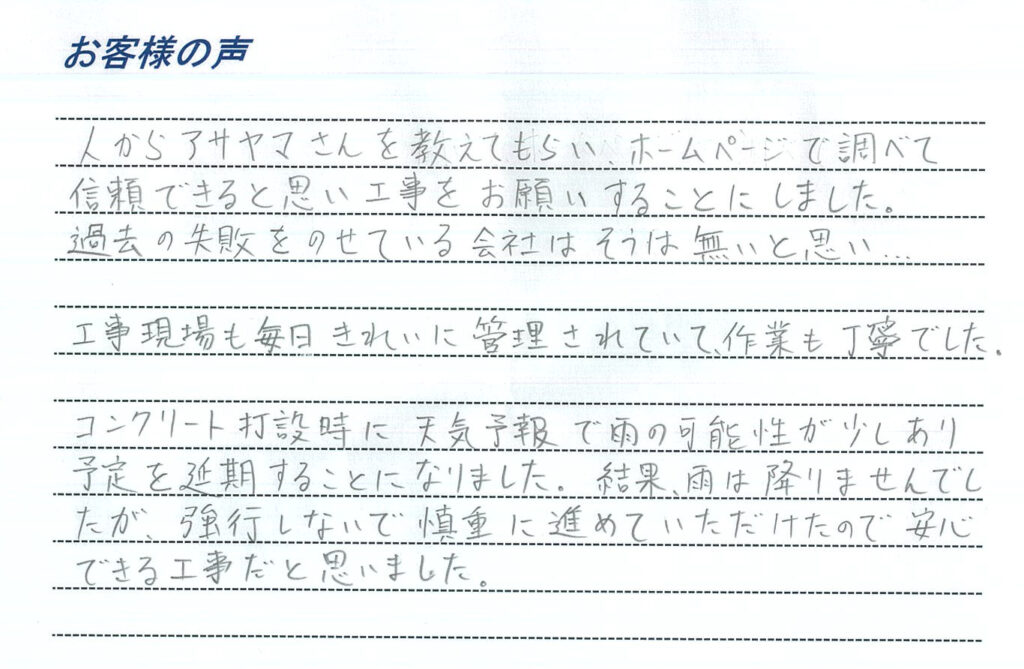 お客様の声
人からアサヤマさんを教えてもらい、ホームページで調べて
信頼できると思い工事をお願いすることにしました。
過去の失敗をのせている会社はそうは無いと思い…
工事現場も毎日きれいに管理されていて、作業も丁寧でした。
コンクリート打設時に天気予報で雨の可能性が少しあり
予定を延期することになりました。結果、雨は降りませんでし
たが、強行しないで慎重に進めていただけたので安心
できる工事だと思いました。